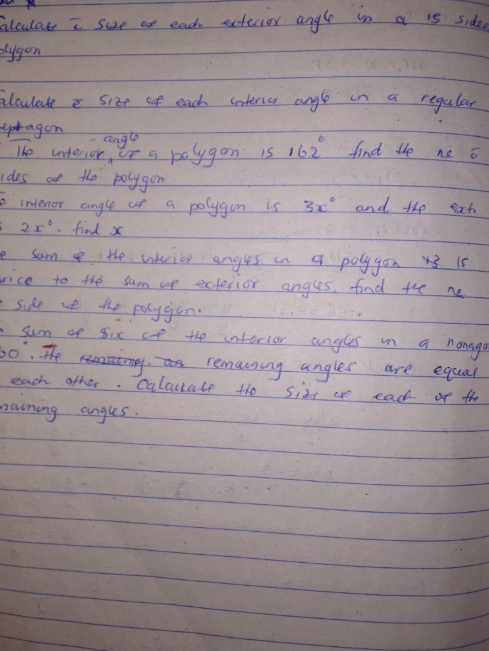 alculate c̄ size of each exterior angle in a 15 sided
olygon
alculate c̄ size of each interior angle in a regular
eptagon
angle
The interior of a polygon is 162° find the no c̄
ides of the polygon
interior angle of a polygon is 3x° and the ext.
2x°. find x
e sum of the interior angles in a polygon is
rice to the sum of exterior angles. find the no
side of the polygon.
sum of six of the interior angles in a nonago
30°. The remaining angles are equal
each other. Calculate the size of each of the
maining angles.